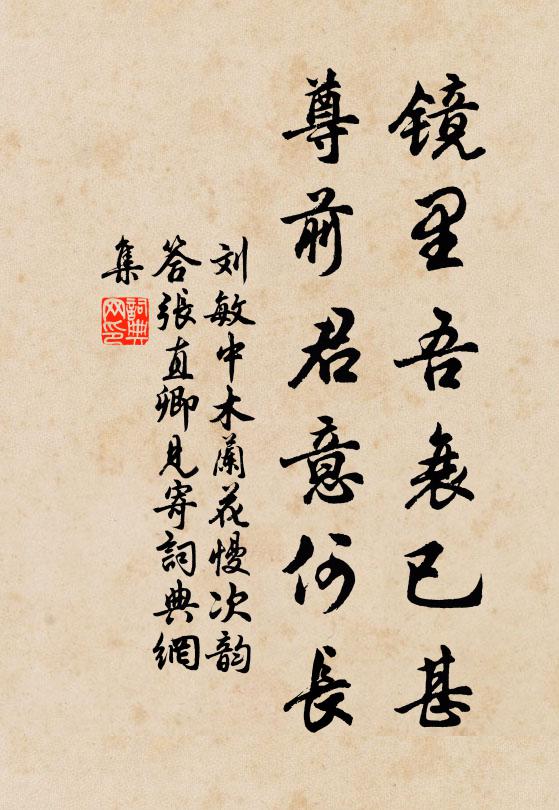 镜里吾衰已甚
尊前君意何长
刘敏中木蘭花慢次韵
答張直卿見寄詞典網
集
詞典网印